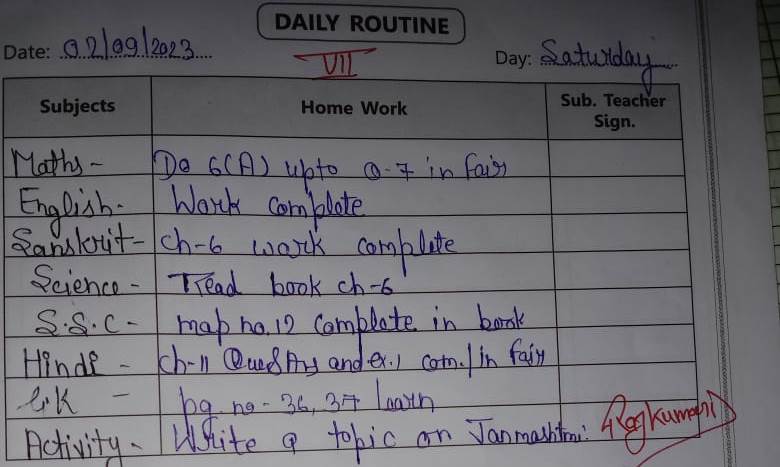 DAILY ROUTINE
Date: 02/09/2023
VII
Day: Saturday
Subjects Home Work Sub. Teacher Sign.
Maths - Do 6(A) upto Q-7 in fair
English - Work complete
Sanskrit - ch-6 work complete
Science - Read book ch-6
S.S.C - map no. 12 complete in book
Hindi - ch-11 Ques Ans and ex.1 com. in fair
G.K - pg. no - 36, 37 learn
Activity - Write a topic on Janmashtmi.
Rajkumari